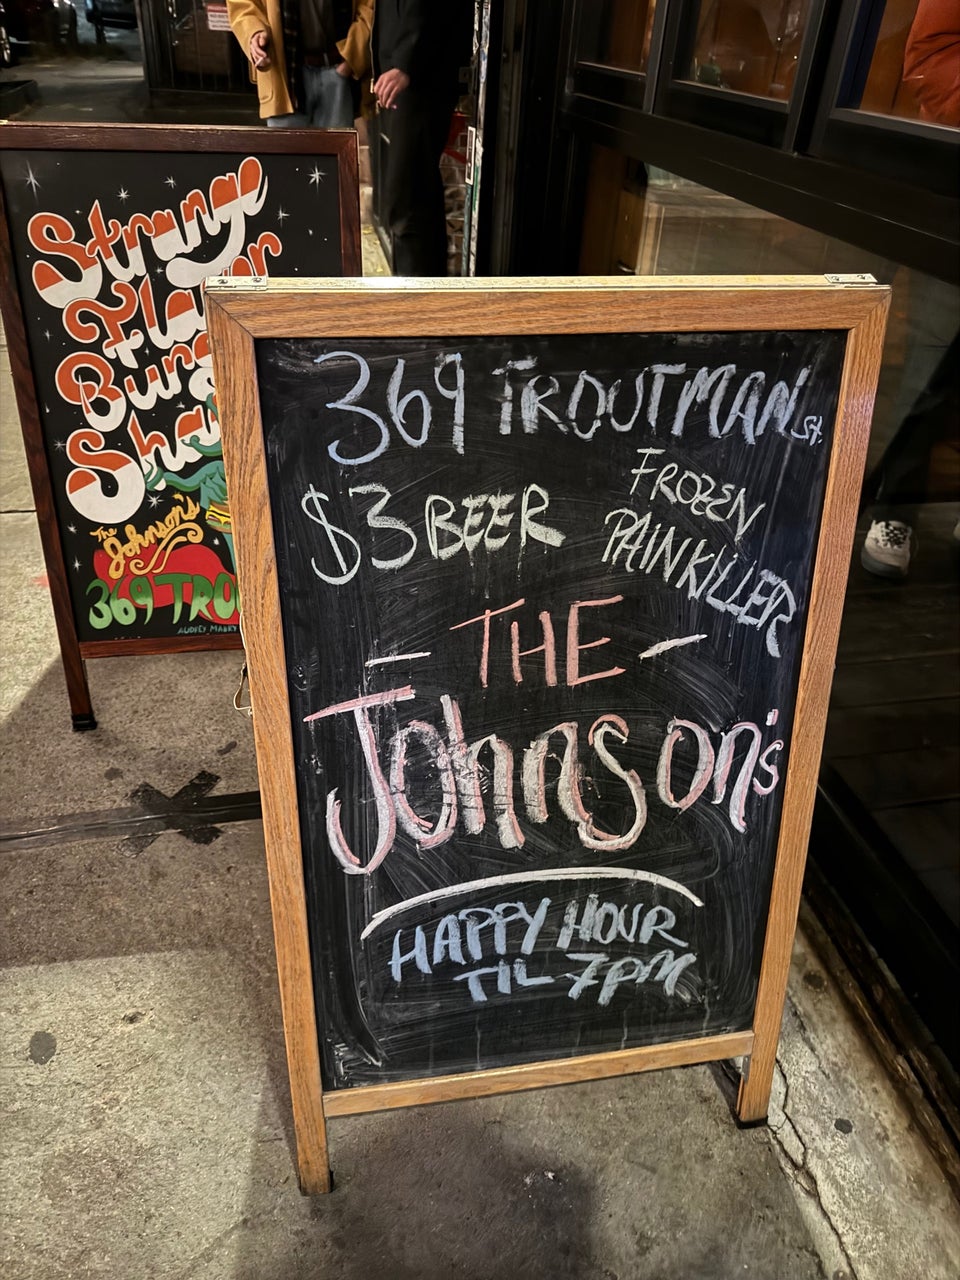 Strange
Flavor
Burg
Sha
The
Johnson's
369 TROU
AUDREY MABRY
369 TROUTMAN St.
$3 BEER
FROZEN
PAINKILLER
THE
Johnson's
HAPPY HOUR
TIL 7PM